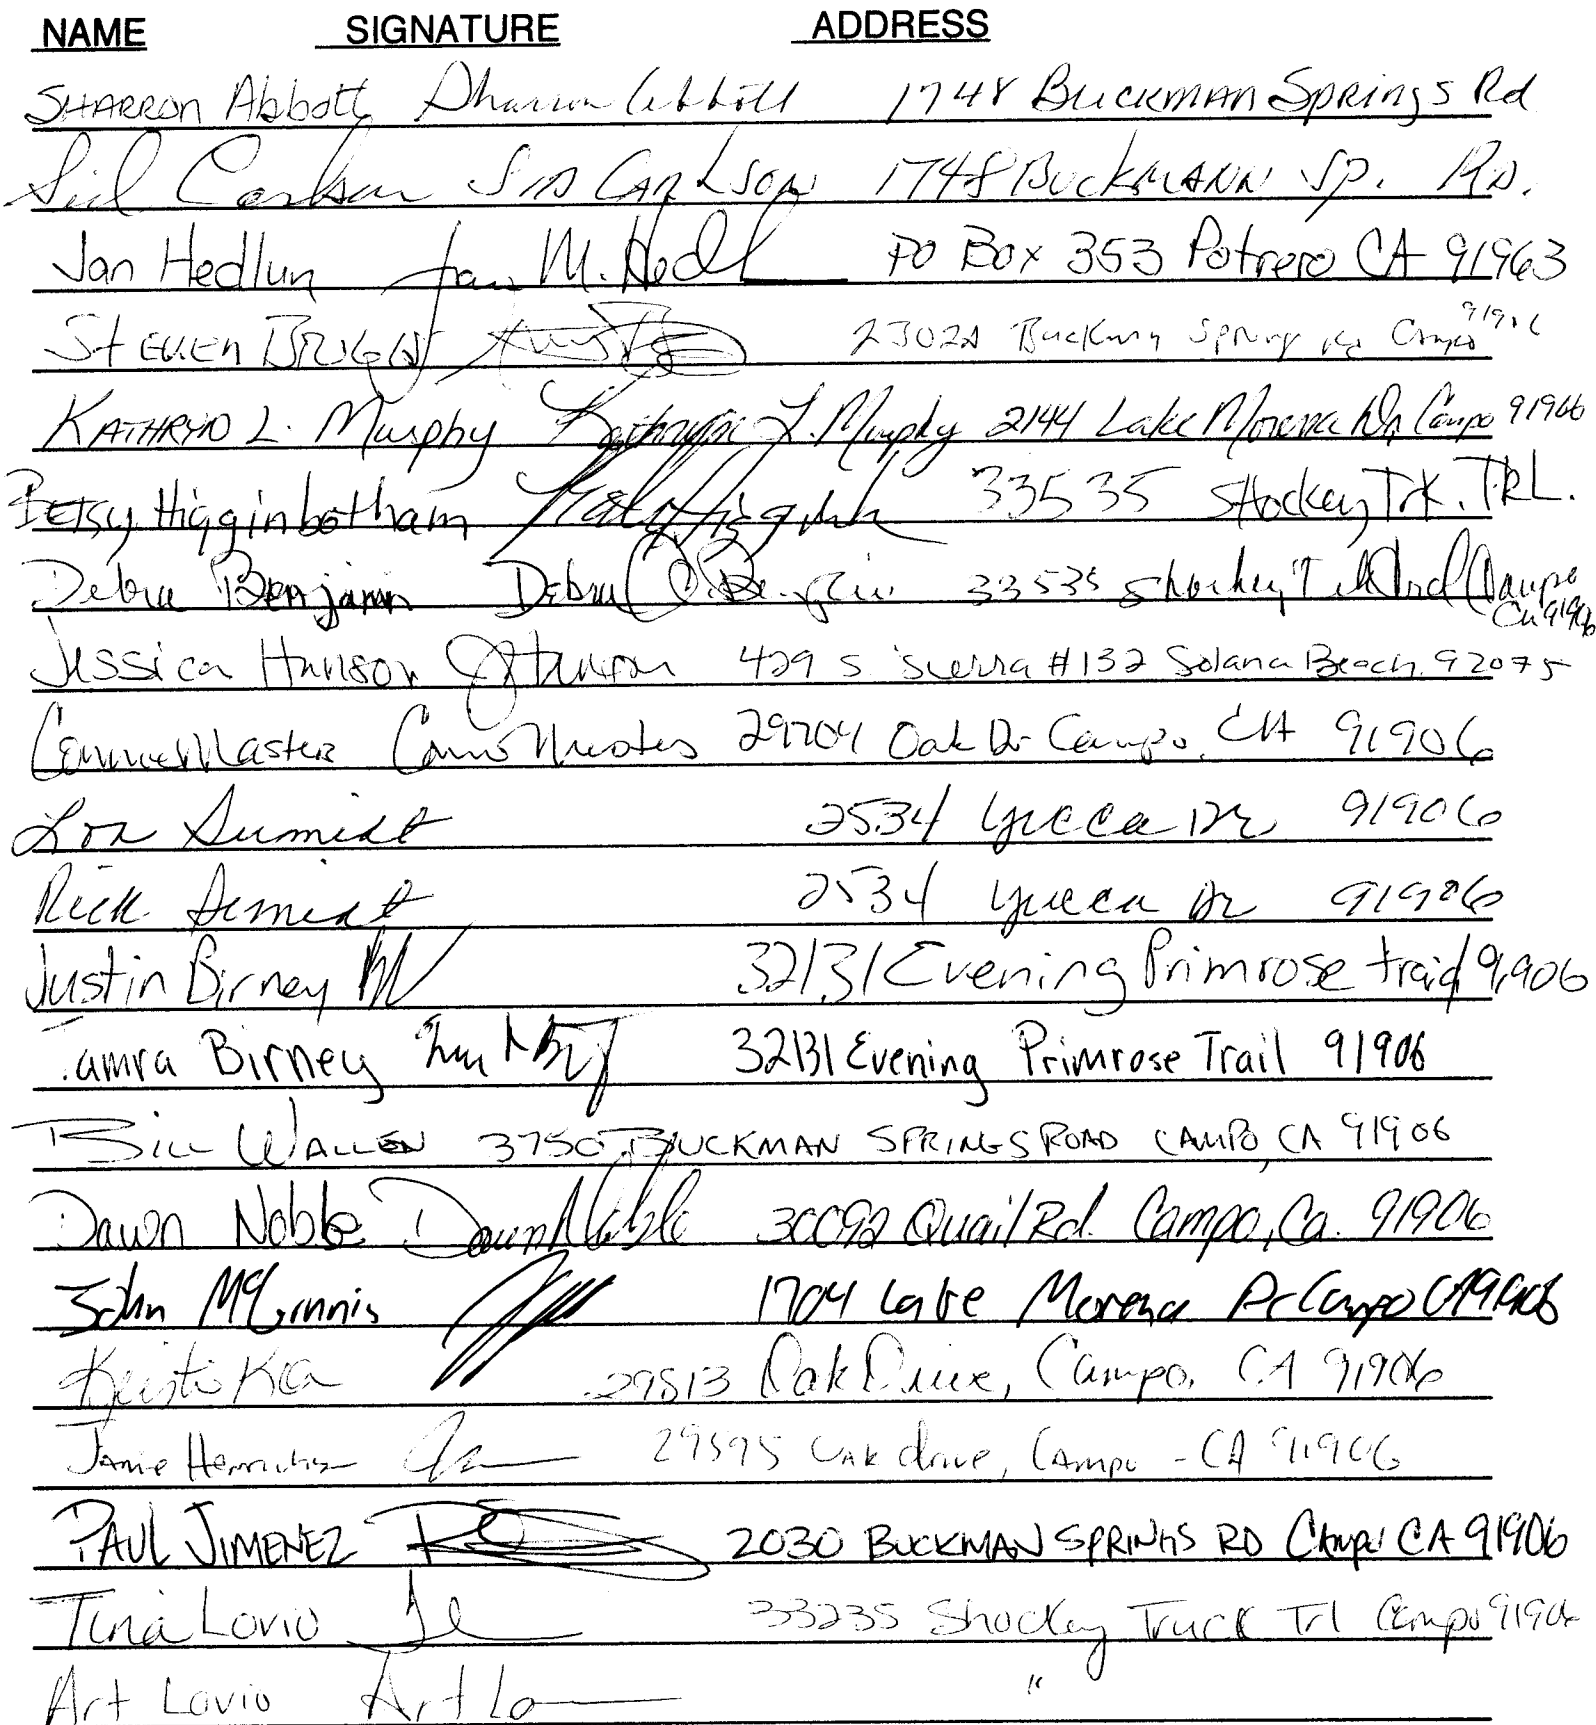 NAME SIGNATURE ADDRESS
SHARRON Abbott Sharron Abbott 1748 BUCKMAN Springs Rd
Sid Carlson SID CARLSON 1748 BUCKMANN SP. RD.
Jan Hedlun Jan M. Hedl PO Box 353 Potrero CA 91963
STEVEN 2302A Buckman Springs Rd Campo 91906
KATHRYN L. Murphy Kathryn L. Murphy 2144 Lake Morena Dr Campo 91906
BETSY Higginbotham 33535 SHockey Trk. TRL.
Debra Benjamin Debra 33535 Shockey Campo Ca 91906
Jessica Hanson JHanson 429 S. Sierra #132 Solana Beach. 92075
Connie Masters Connie Masters 29704 Oak Dr Campo, CA 91906
2534 Yucca Dr 91906
Rick 2534 Yucca Dr 91906
Justin Birney 32131 Evening Primrose 91906
Tamra Birney 32131 Evening Primrose Trail 91906
BILL WALLEN 3750 BUCKMAN SPRINGS ROAD CAMPO, CA 91906
Dawn Noble Dawn Noble 30092 Quail Rd. Campo, Ca. 91906
John McGinnis 1704 Lake Morena Dr Campo CA 91906
29513 Oak Drive, Campo, CA 91906
Jamie 29595 Oak drive, Campo - CA 91906
PAUL JIMENEZ 2030 BUCKMAN SPRINGS RD Campo CA 91906
Tina Lovio 33235 Shockey Truck Trl Campo 91906
Art Lovio Art Lo "